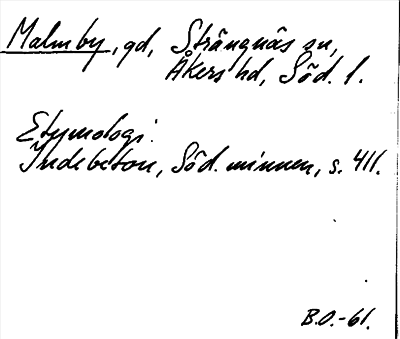 Malmby, gd, Strängnäs sn,
Åkers hd, Söd. l.
Etymologi.
Indebetou, Söd. minnen, s. 411.
B.O.-61.